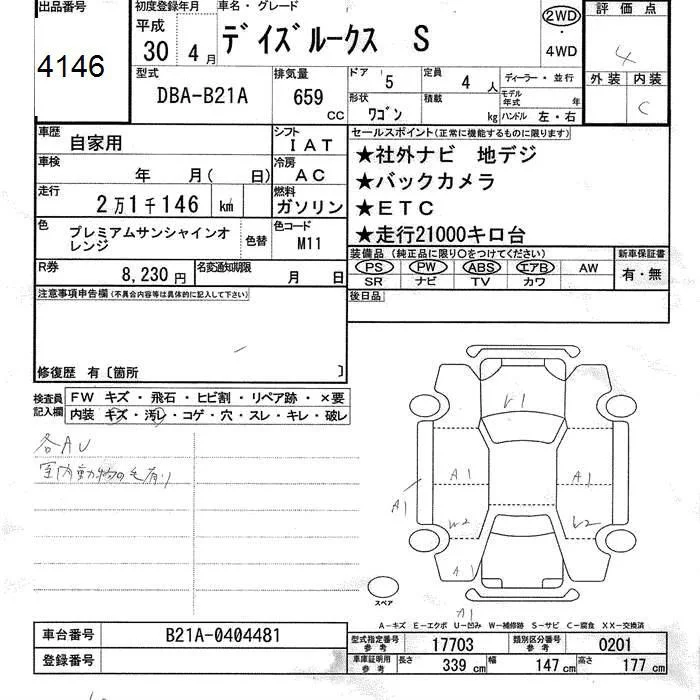 出品番号 初度登録年月 車名・グレード 評価点
4146 平成 30 4月 デイズルークス S 2WD ・ 4WD 4
型式 排気量 ドア 5 定員 4 人 ディーラー・並行 外装 内装
DBA-B21A 659 CC 形状 ワゴン 積載 kg モデル年式 年 ハンドル 左・右 C
車歴 自家用 シフト IAT セールスポイント(正常に機能するものに限ります)
車検 年 月( 日) 冷房 AC ★社外ナビ 地デジ
走行 2万1千146 km 燃料 ガソリン ★バックカメラ
★ETC
色 プレミアムサンシャインオレンジ 色替 色コード M11 ★走行21000キロ台
装備品(純正品に限り○をつけてください) 新車保証書
R券 8,230円 名変通知期限 月 日 PS PW ABS エアB AW 有・無
SR ナビ TV カワ
注意事項申告欄(不具合内容等は具体的に記入して下さい) 後日品
修復歴 有〔箇所 〕
検査員記入欄 FW キズ・飛石・ヒビ割・リペア跡・×要
内装 キズ・汚レ・コゲ・穴・スレ・キレ・破レ
各AU
室内動物の毛有り
A1
A1
A1
W2
A1
A1
スペア
A-キズ E-エクボ U-凹み W-補修跡 S-サビ C-腐食 XX-交換済
車台番号 B21A-0404481 型式指定番号 参考 17703 類別区分番号 参考 0201
登録番号 車庫証明用 参考 長さ 339 cm 幅 147 cm 高さ 177 cm